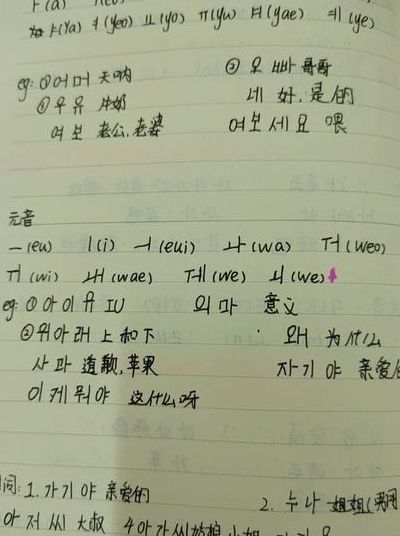 ㅏ(a)
ㅑ(ya) ㅕ(yeo) ㅛ(yo) ㅠ(yu) ㅒ(yae) ㅖ(ye)
eg: ①어머 天呐 ② 오빠 哥哥
①우유 牛奶 네 好,是的
여보 老公,老婆 여보세요 喂
元音
ㅡ(eu) ㅣ(i) ㅢ(eui) ㅘ(wa) ㅝ(weo)
ㅟ(wi) ㅙ(wae) ㅞ(we) ㅚ(we)
eg: ①아이유 IU 의마 意义
②위아래 上和下 왜 为什么
사과 道歉,苹果 자기야 亲爱
이게뭐야 这什么呀
词: 1. 자기야 亲爱的 2. 누나 姐姐(男用
아저씨 大叔 4아가씨 姑娘 小姐